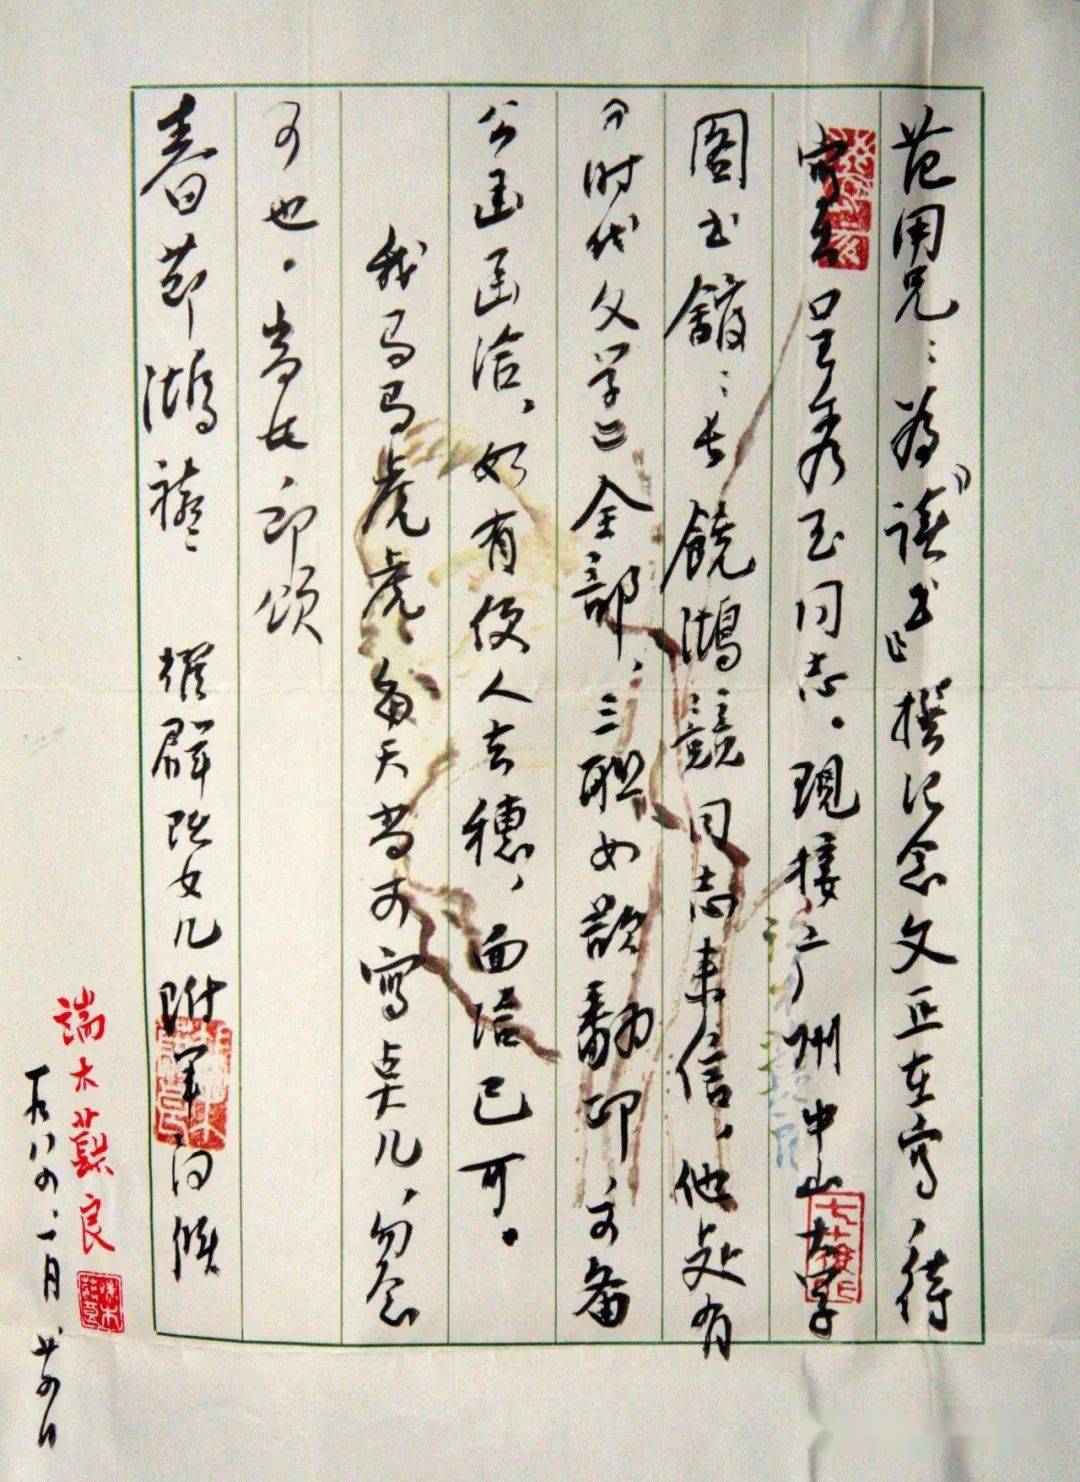 范用兄：为《读书》撰记念文正在写，待
寄秀玉同志。现接广州中山大学
图书馆：长饶鸿競同志来信，他处有
《时代文学》全部，三联如欲翻印，可备
公函函洽，如有便人去穗，面洽已可。
我马马虎虎每天尚可写点儿，勿念
可也。专此即颂
春节鸿禧
耀群跃女儿附笔问候
端木蕻良
一九八四、一月廿四日